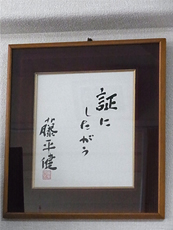 証に
したがう
藤平健